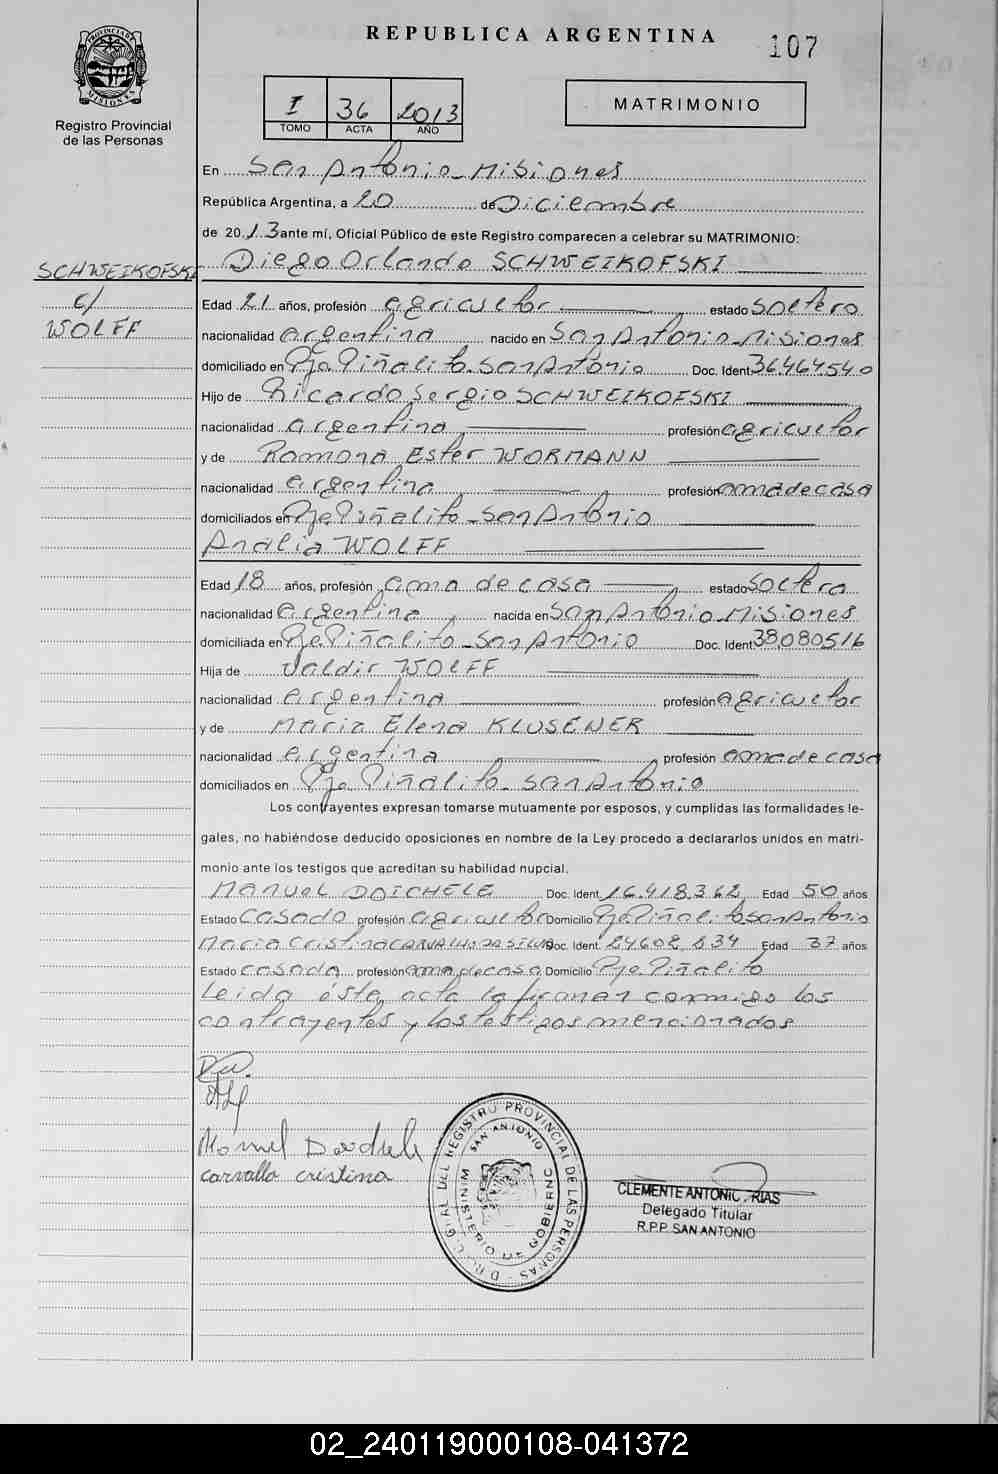 REPUBLICA ARGENTINA
107
PROVINCIA DE MISIONES
Registro Provincial
de las Personas
I 36 2013
TOMO ACTA AÑO
MATRIMONIO
En San Antonio - Misiones
República Argentina, a 20 de Diciembre
de 2013 ante mí, Oficial Público de este Registro comparecen a celebrar su MATRIMONIO:
SCHWEIKOFSKI
c/
WOLFF
Diego Orlando SCHWEIKOFSKI
Edad 21 años, profesión agricultor estado soltero
nacionalidad argentina nacido en San Antonio - Misiones
domiciliado en Pje. Piñalito - San Antonio Doc. Ident 36.464.540
Hijo de Ricardo Sergio SCHWEIKOFSKI
nacionalidad argentina profesión agricultor
y de Ramona Ester WORMANN
nacionalidad argentina profesión ama de casa
domiciliados en Pje Piñalito - San Antonio
Analia WOLFF
Edad 18 años, profesión ama de casa estado soltera
nacionalidad argentina nacida en San Antonio Misiones
domiciliada en Pje Piñalito - San Antonio Doc. Ident 38.080.516
Hija de Valdir WOLFF
nacionalidad argentina profesión agricultor
y de Maria Elena KLUSENER
nacionalidad argentina profesión ama de casa
domiciliados en Pje Piñalito - San Antonio
Los contrayentes expresan tomarse mutuamente por esposos, y cumplidas las formalidades le-
gales, no habiéndose deducido oposiciones en nombre de la Ley procedo a declararlos unidos en matri-
monio ante los testigos que acreditan su habilidad nupcial.
Manuel DOICHELE Doc. Ident. 16.418.362 Edad 50 años
Estado casado profesión agricultor Domicilio Pje Piñalito San Antonio
Maria Cristina CARVALHO DA SILVA Doc. Ident. 24602.834 Edad 37 años
Estado casada profesión ama de casa Domicilio Pje. Piñalito
Leida ésta acta la firman conmigo los
contrayentes y los testigos mencionados
Manuel
carvallo cristina
GRAL DEL REGISTRO PROVINCIAL DE LAS PERSONAS
SAN ANTONIO
MINISTERIO DE GOBIERNO
CLEMENTE ANTONIO RIAS
Delegado Titular
R.P.P. SAN ANTONIO
02_240119000108-041372